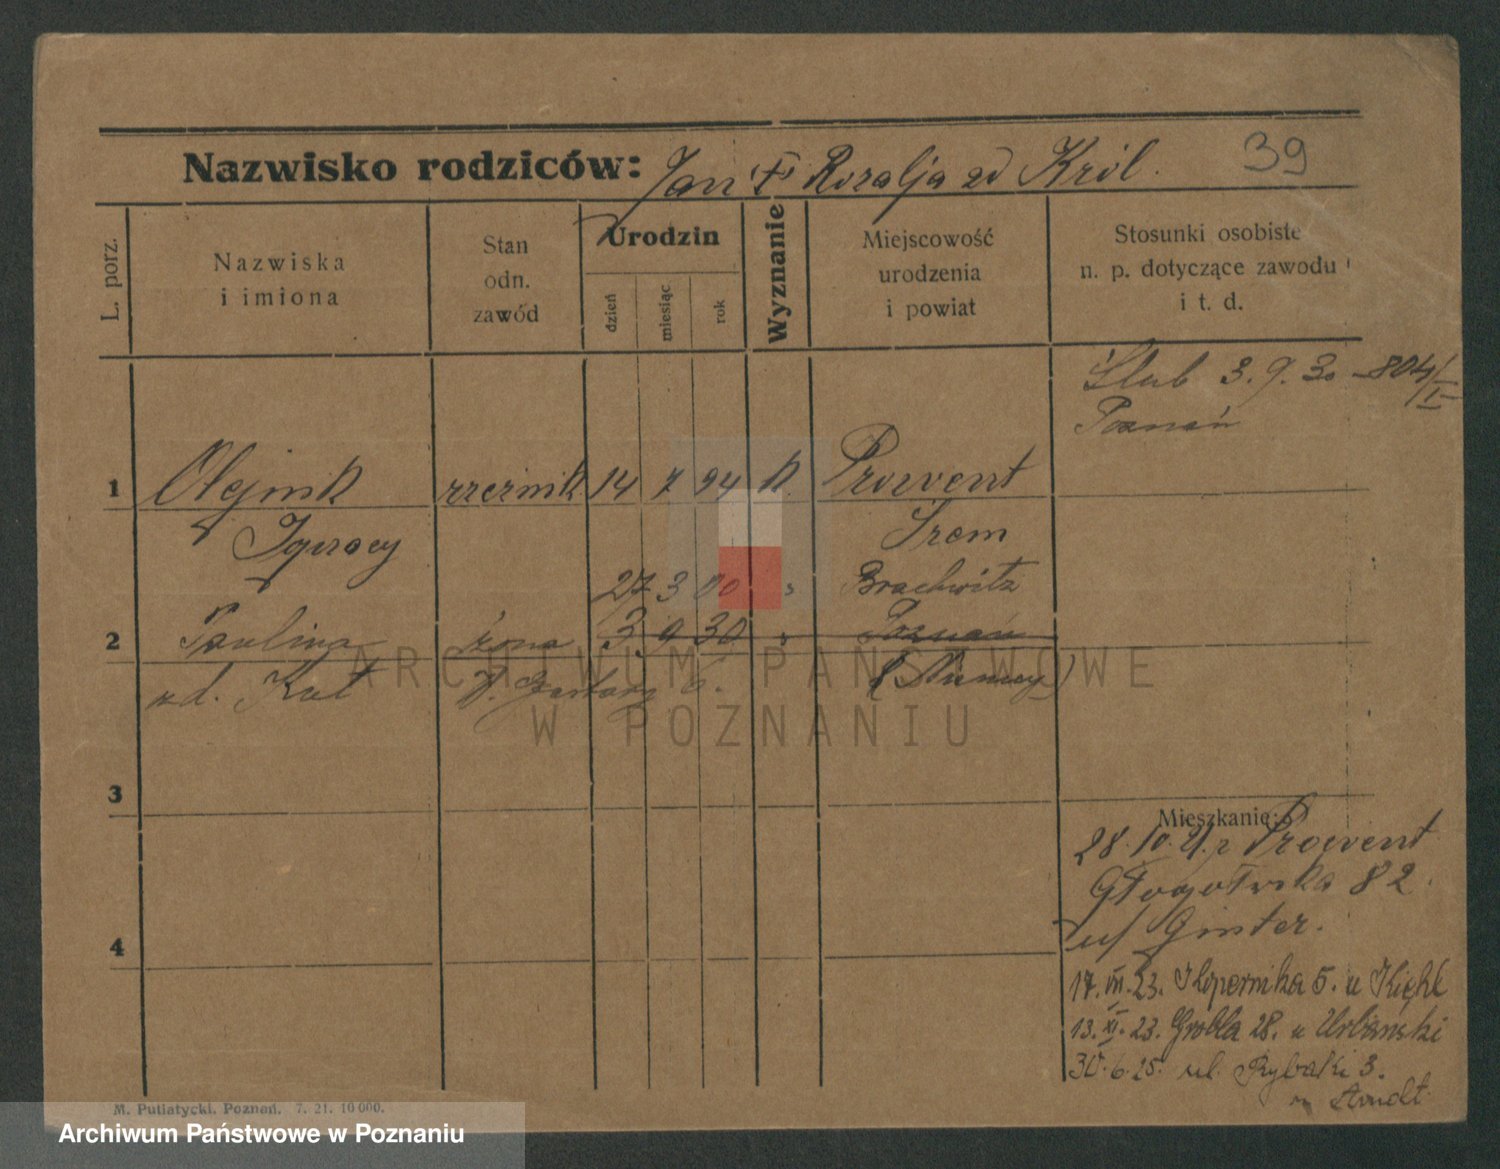 39
Nazwisko rodziców: Jan i Rozalja zd Król.
L. porz.
Nazwiska
i imiona
Stan
odn.
zawód
Urodzin
dzień
miesiąc
rok
Wyznanie
Miejscowość
urodzenia
i powiat
Stosunki osobiste
n. p. dotyczące zawodu
i t. d.
Ślub 3. 9. 30 - 804/I
Poznań
1 Olejnik rzeźnik 14 7 94 k Prowent
Ignacy Śrem
27 3 00 Brachwitz
2 Paulina żona 3 9 30 Poznań
zd. Kut (Niemcy)
3
Mieszkanie:
28. 10. 21. z Prowent
Głogowska 82.
u/ Ginter.
4
17. VII. 23. Kopernika 5. u
13. XI. 23. Grobla 28. u Urbański
30. 6. 25. ul. Rybaki 3.
u Arndt
M. Putiatycki, Poznań. 7. 21. 10000.
ARCHIWUM PAŃSTWOWE
W POZNANIU
Archiwum Państwowe w Poznaniu